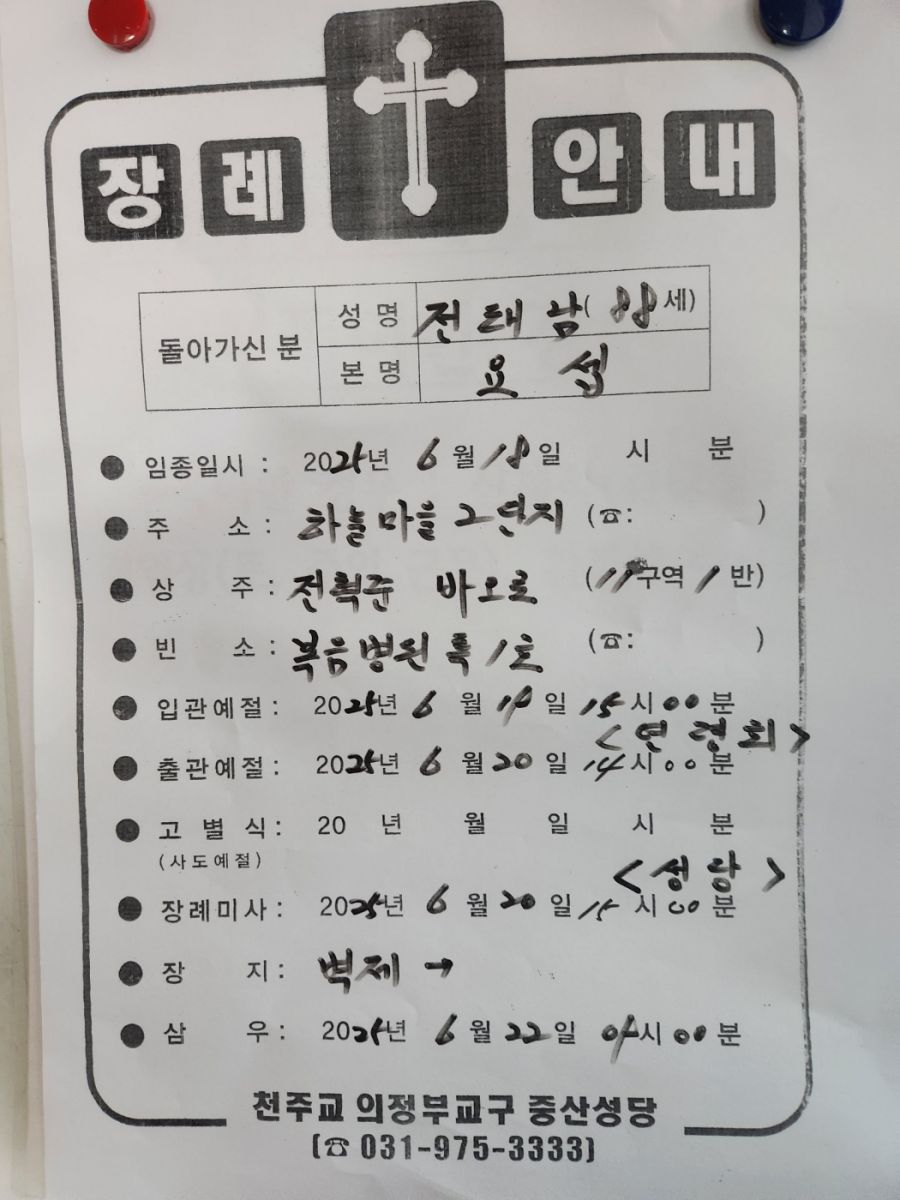 장례 안내
돌아가신 분 성명 전태남( 88 세)
본명 요셉
임종일시 : 2025년 6월 18일 시 분
주 소 : 하늘마을 2단지 (☎: )
상 주 : 바오로 (11구역 1반)
빈 소 : 복음병원 특1호 (☎: )
입관예절 : 2025년 6월 19일 15시 00분
<연령회>
출관예절 : 2025년 6월 20일 14시 00분
고 별 식 : 20 년 월 일 시 분
(사도예절)
<성당>
장례미사 : 2025년 6월 20일 15시 00분
장 지 : 벽제 →
삼 우 : 2025년 6월 22일 시 00분
천주교 의정부교구 중산성당
(☎ 031-975-3333)